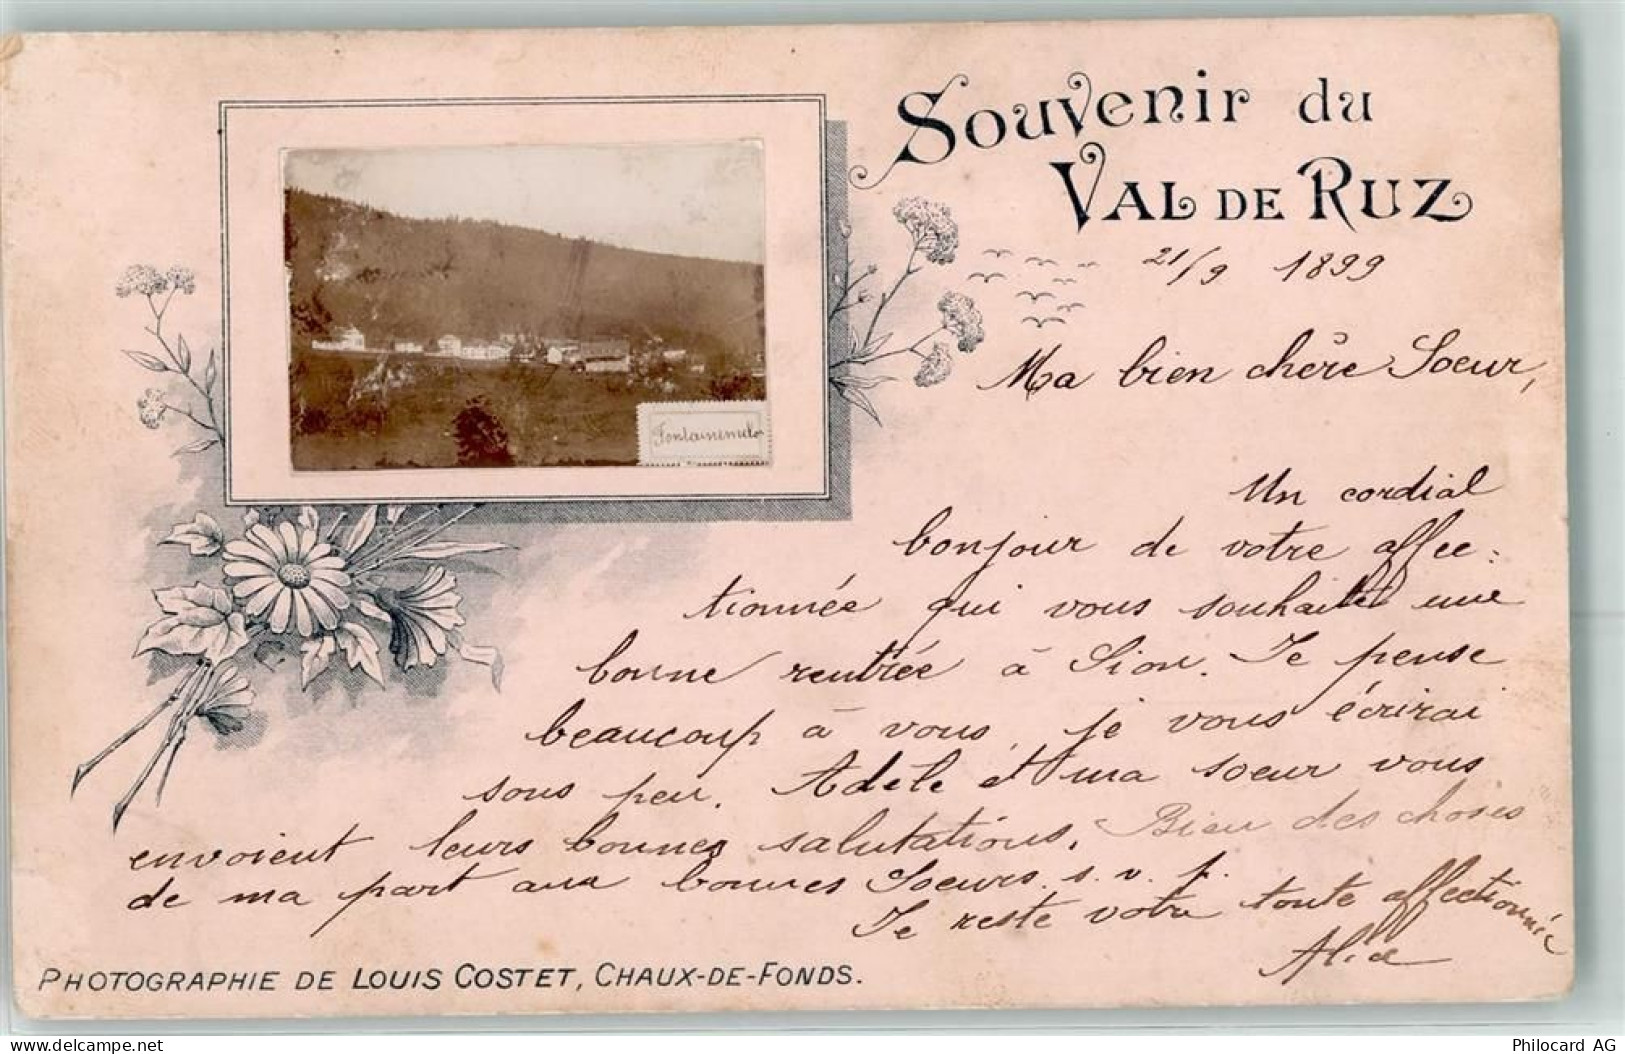 Souvenir du
Val de Ruz
21/9 1899
Ma bien chère Soeur,
Fontainemelo
Un cordial
bonjour de votre affec-
tionnée qui vous souhaite une
bonne rentrée à Sion. Je pense
beaucoup à vous, je vous écrirai
sous peu. Adèle et ma soeur vous
envoient leurs bonnes salutations. Bien des choses
de ma part aux bonnes Soeurs. s. v. p.
Je reste votre toute affectionnée
Alice
Photographie de Louis Costet, Chaux-de-Fonds.
www.delcampe.net
Philocard AG